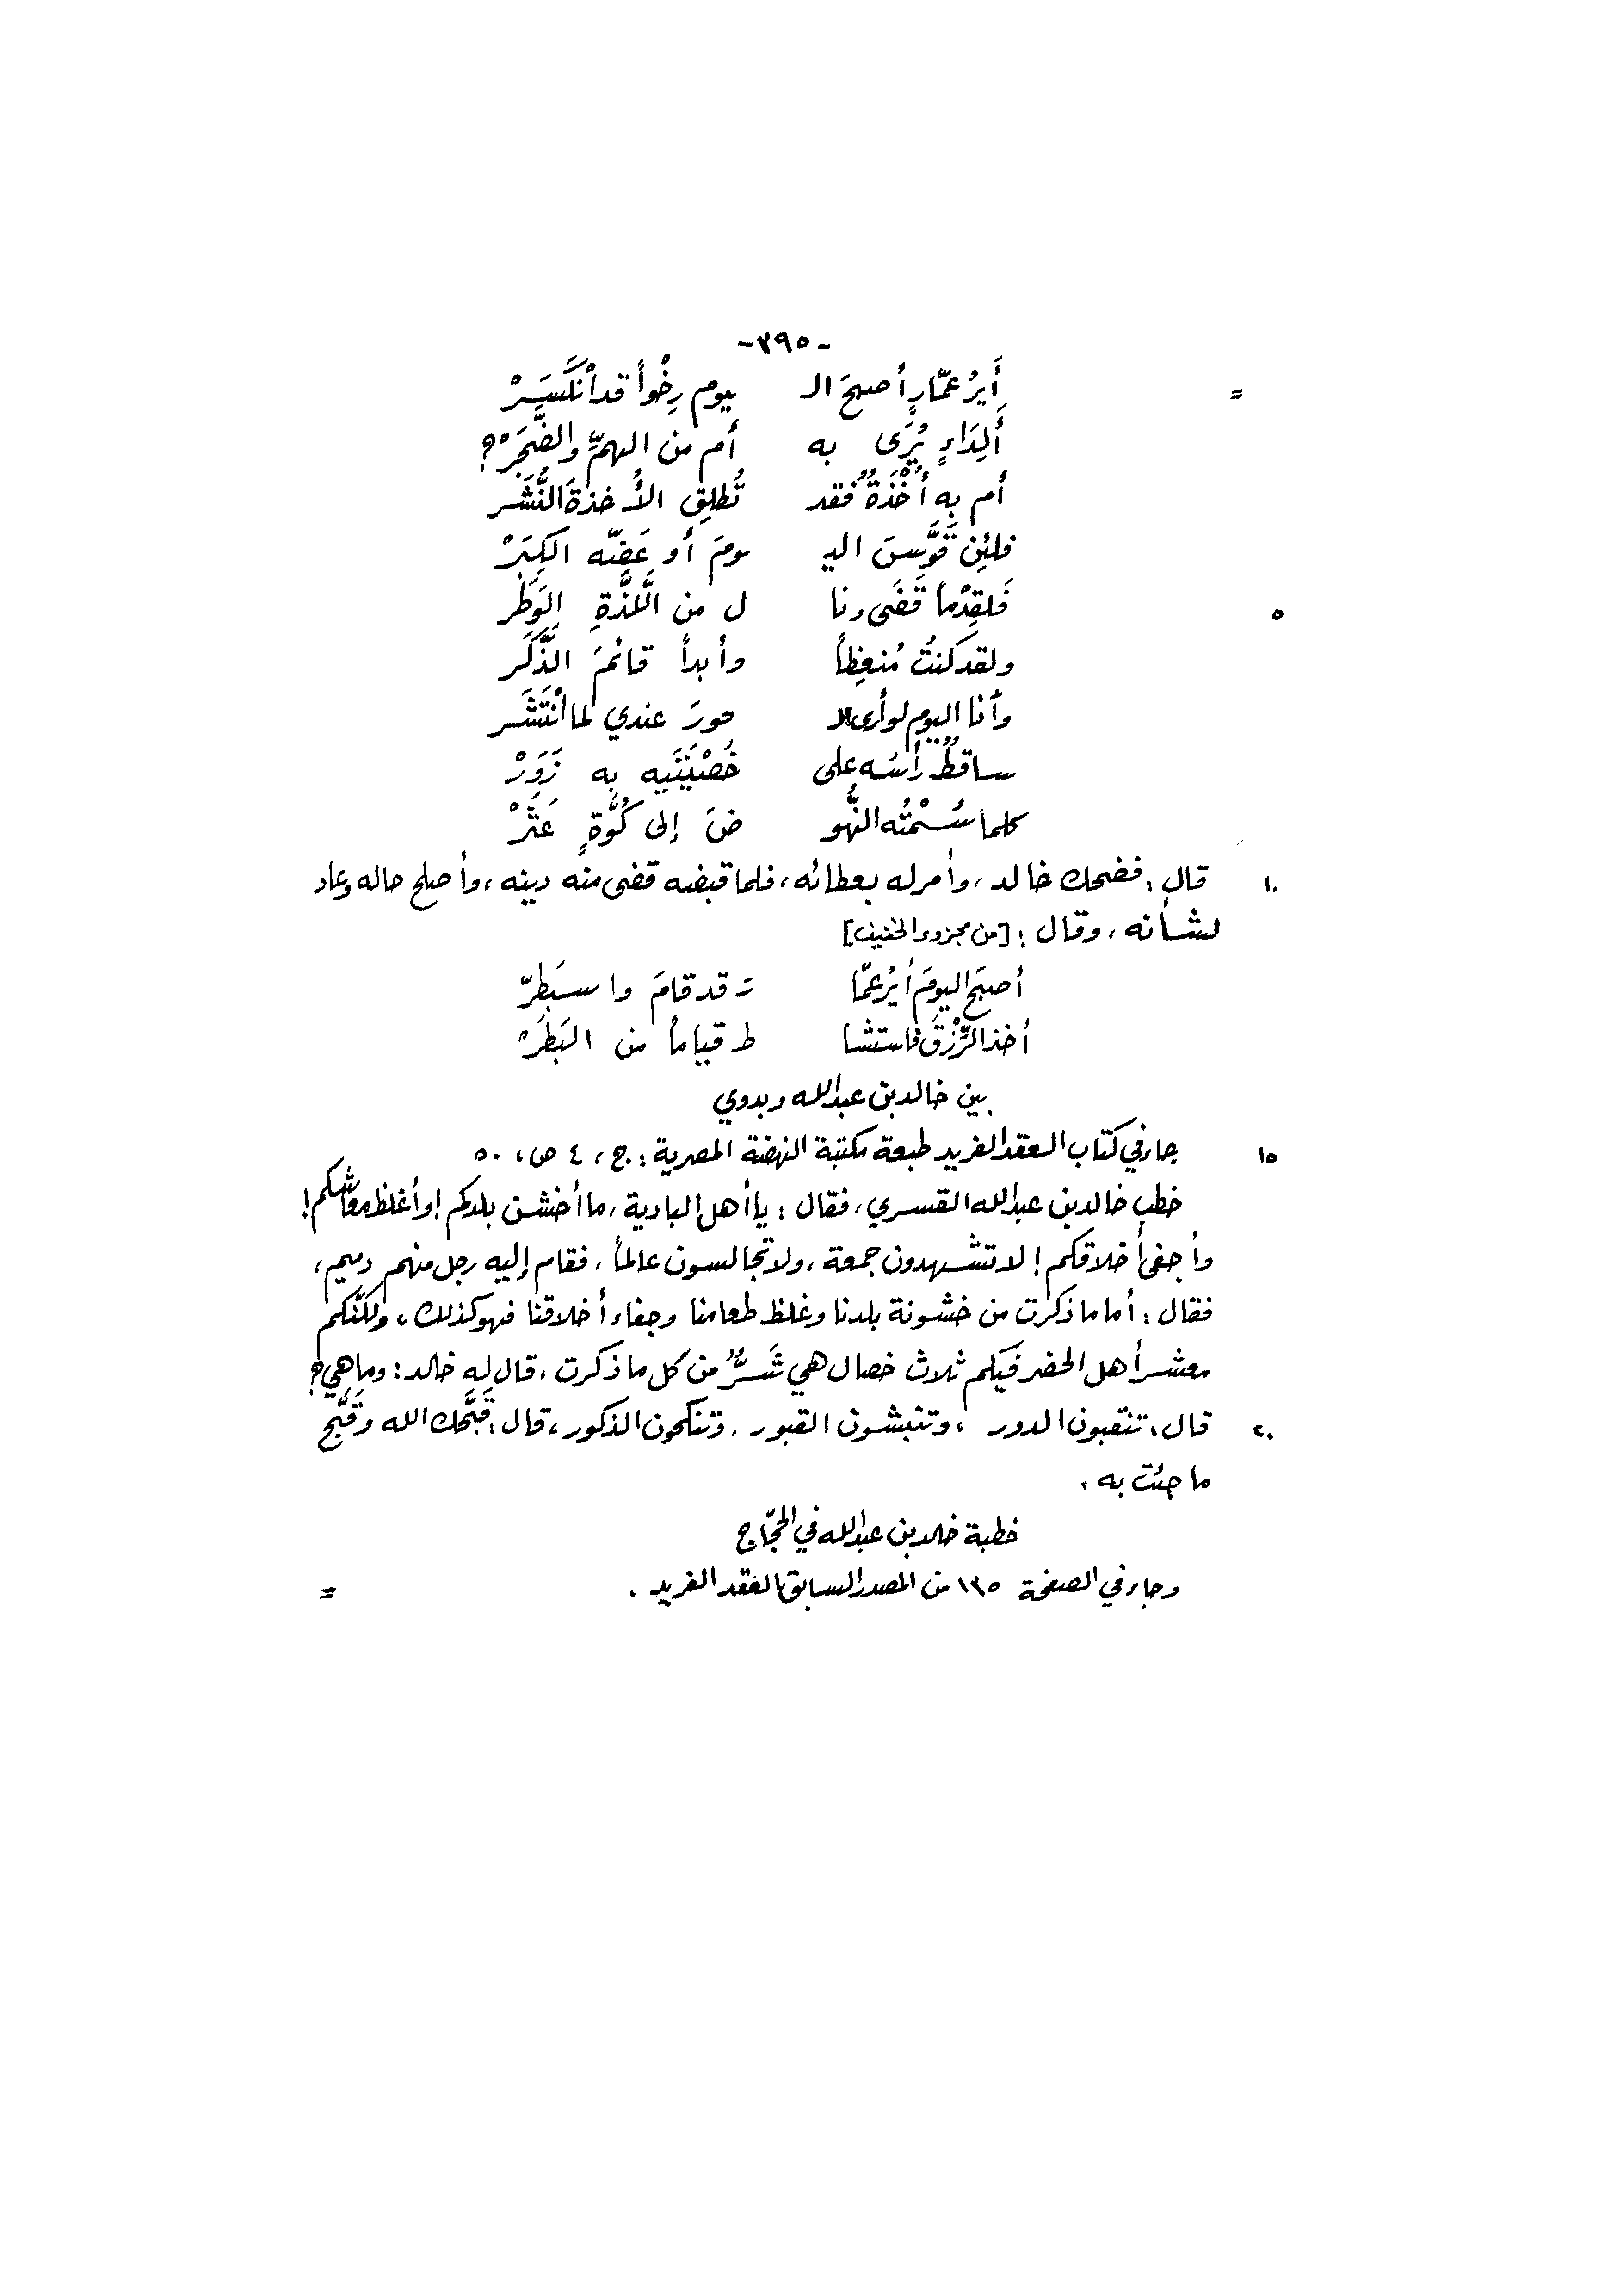 -٣٩٥-
= أَيرُ عمّارٍ أصبحَ الـ يوم رِخْواً قد انْكَسَرْ
أَلِدَاءٍ يُرَى به أم من الهمِّ والضَّجَرْ؟
أم به أُخْذَةٌ فقد تُطلِق الأُخذةَ النُّشَر
فلئِن قَوَّسَ اليـ ـومَ أو عَضّه الكِبَرْ
٥ فَلقِدْماً قَضَى ونا ل من اللَّذَّةِ الوَطَر
ولقد كنتُ مُنعِظاً وأبداً قائمَ الذَّكَر
وأنا اليوم لو أرى الـ حورَ عندي لما انْتَشَر
ساقطٌ رأسُه على خُصْيَتَيه به زَوَرْ
كلما سُمْتُه النُّهو ضَ إلى كُوَّةٍ عَثَرْ
١٠ قال: فضحك خالد، وأمر له بعطائه، فلما قبضه قضى منه دينه، وأصلح حاله وعاد
لشأنه، وقال: [من مجزوء الخفيف]
أصبحَ اليومَ أيرُ عمّا رَ قد قامَ واسبَطِرّ
أخذ الرِّزْقَ فاستشا ط قياماً من البَطَرْ
بين خالد بن عبد الله وبدوي
١٥ جاء في كتاب العقد الفريد طبعة مكتبة النهضة المصرية: ج، ٤ ص، ٥٠
خطب خالد بن عبد الله القسري، فقال: يا أهل البادية، ما أخشن بلدكم! وأغلظ معاشكم!
وأجفى أخلاقكم! لا تشهدون جمعة، ولا تجالسون عالماً، فقام إليه رجل منهم دميم،
فقال: أما ما ذكرت من خشونة بلدنا وغلظ طعامنا وجفاء أخلاقنا فهو كذلك، ولكنّكم
معشر أهل الحضر فيكم ثلاث خصال هي شَرٌّ من كل ما ذكرت، قال له خالد: وما هي؟
٢٠ قال: تنقبون الدور، وتنبشون القبور، وتنكحون الذكور، قال: قَبَّحك الله وقَبَّح
ما جئت به.
خطبة خالد بن عبد الله في الحجّاج
وجاء في الصفحة ١٣٥ من المصدر السابق العقد الفريد. =